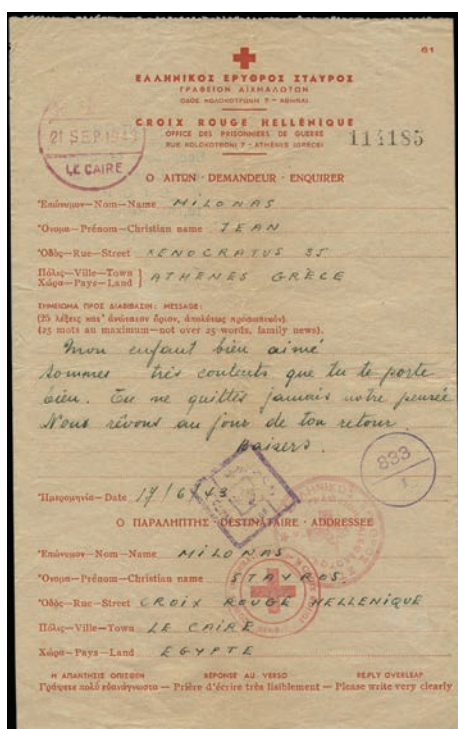 61
ΕΛΛΗΝΙΚΟΣ ΕΡΥΘΡΟΣ ΣΤΑΥΡΟΣ
ΓΡΑΦΕΙΟΝ ΑΙΧΜΑΛΩΤΩΝ
ΟΔΟΣ ΚΟΛΟΚΟΤΡΩΝΗ 7 - ΑΘΗΝΑΙ
CROIX ROUGE HELLÉNIQUE
OFFICE DES PRISONNIERS DE GUERRE
RUE KOLOKOTRONI 7 - ATHÈNES (GRÈCE)
114185
21 SEP. 1943
LE CAIRE
Ο ΑΙΤΩΝ · DEMANDEUR · ENQUIRER
Ἐπώνυμον—Nom—Name MILONAS
Ὄνομα—Prénom—Christian name JEAN
Ὁδός—Rue—Street XENOCRATUS 35
Πόλις—Ville—Town
Χώρα—Pays—Land } ATHÈNES GRÈCE
ΣΗΜΕΙΩΜΑ ΠΡΟΣ ΔΙΑΒΙΒΑΣΙΝ: MESSAGE:
(25 λέξεις κατ' ἀνώτατον ὅριον, ἀπολύτως προσωπικόν).
(25 mots au maximum—not over 25 words, family news).
Mon enfant bien aimé
sommes très contents que tu te porte
bien. Tu ne quittes jamais notre pensée
Nous rêvons au jour de ton retour.
Baisers.
833
1
Ἡμερομηνία—Date 17/6/43
Ο ΠΑΡΑΛΗΠΤΗΣ · DESTINATAIRE · ADDRESSEE
Ἐπώνυμον—Nom—Name MILONAS
Ὄνομα—Prénom—Christian name STAVROS
Ὁδός—Rue—Street CROIX ROUGE HELLENIQUE
Πόλις—Ville—Town LE CAIRE
Χώρα—Pays—Land EGYPTE
Η ΑΠΑΝΤΗΣΙΣ ΟΠΙΣΘΕΝ RÉPONSE AU VERSO REPLY OVERLEAF
Γράψετε πολύ εὐανάγνωστα — Prière d'écrire très lisiblement — Please write very clearly